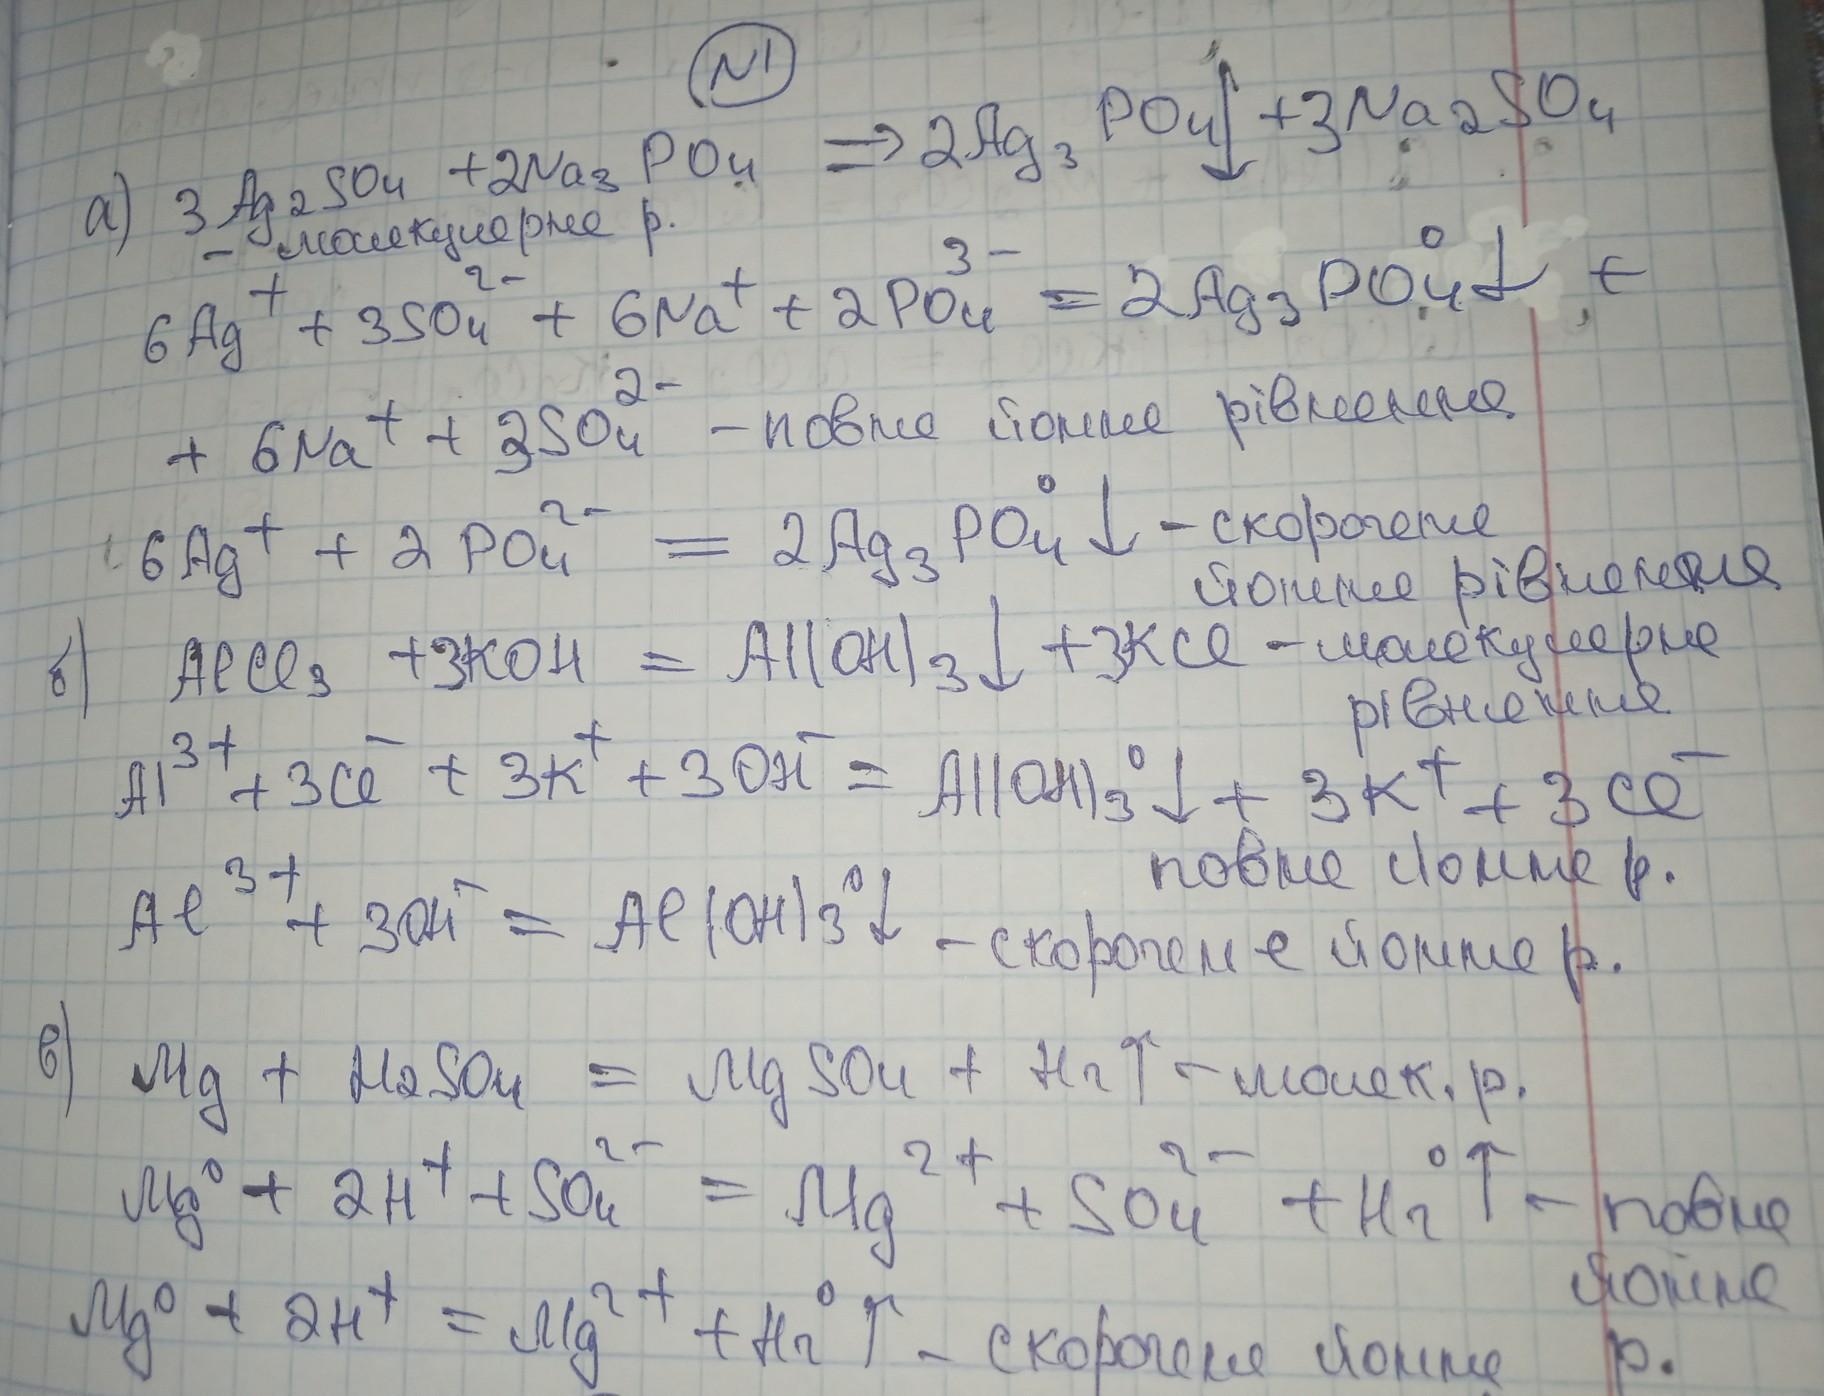 N1
а) 3Ag2SO4 + 2Na3PO4 => 2Ag3PO4↓ + 3Na2SO4
- молекулярне р.
6Ag⁺ + 3SO4²⁻ + 6Na⁺ + 2PO4³⁻ = 2Ag3PO4⁰↓ +
+ 6Na⁺ + 3SO4²⁻ - повне йонне рівняння
6Ag⁺ + 2PO4²⁻ = 2Ag3PO4⁰↓ - скорочене
йонне рівняння
б) AlCl3 + 3KOH = Al(OH)3↓ + 3KCl - молекулярне
рівняння
Al³⁺ + 3Cl⁻ + 3K⁺ + 3OH⁻ = Al(OH)3⁰↓ + 3K⁺ + 3Cl⁻
повне йонне р.
Al³⁺ + 3OH⁻ = Al(OH)3⁰↓ - скорочене йонне р.
в) Mg + H2SO4 = MgSO4 + H2↑ - молек. р.
Mg⁰ + 2H⁺ + SO4²⁻ = Mg²⁺ + SO4²⁻ + H2⁰↑ - повне
йонне
Mg⁰ + 2H⁺ = Mg²⁺ + H2⁰↑ - скорочене йонне р.